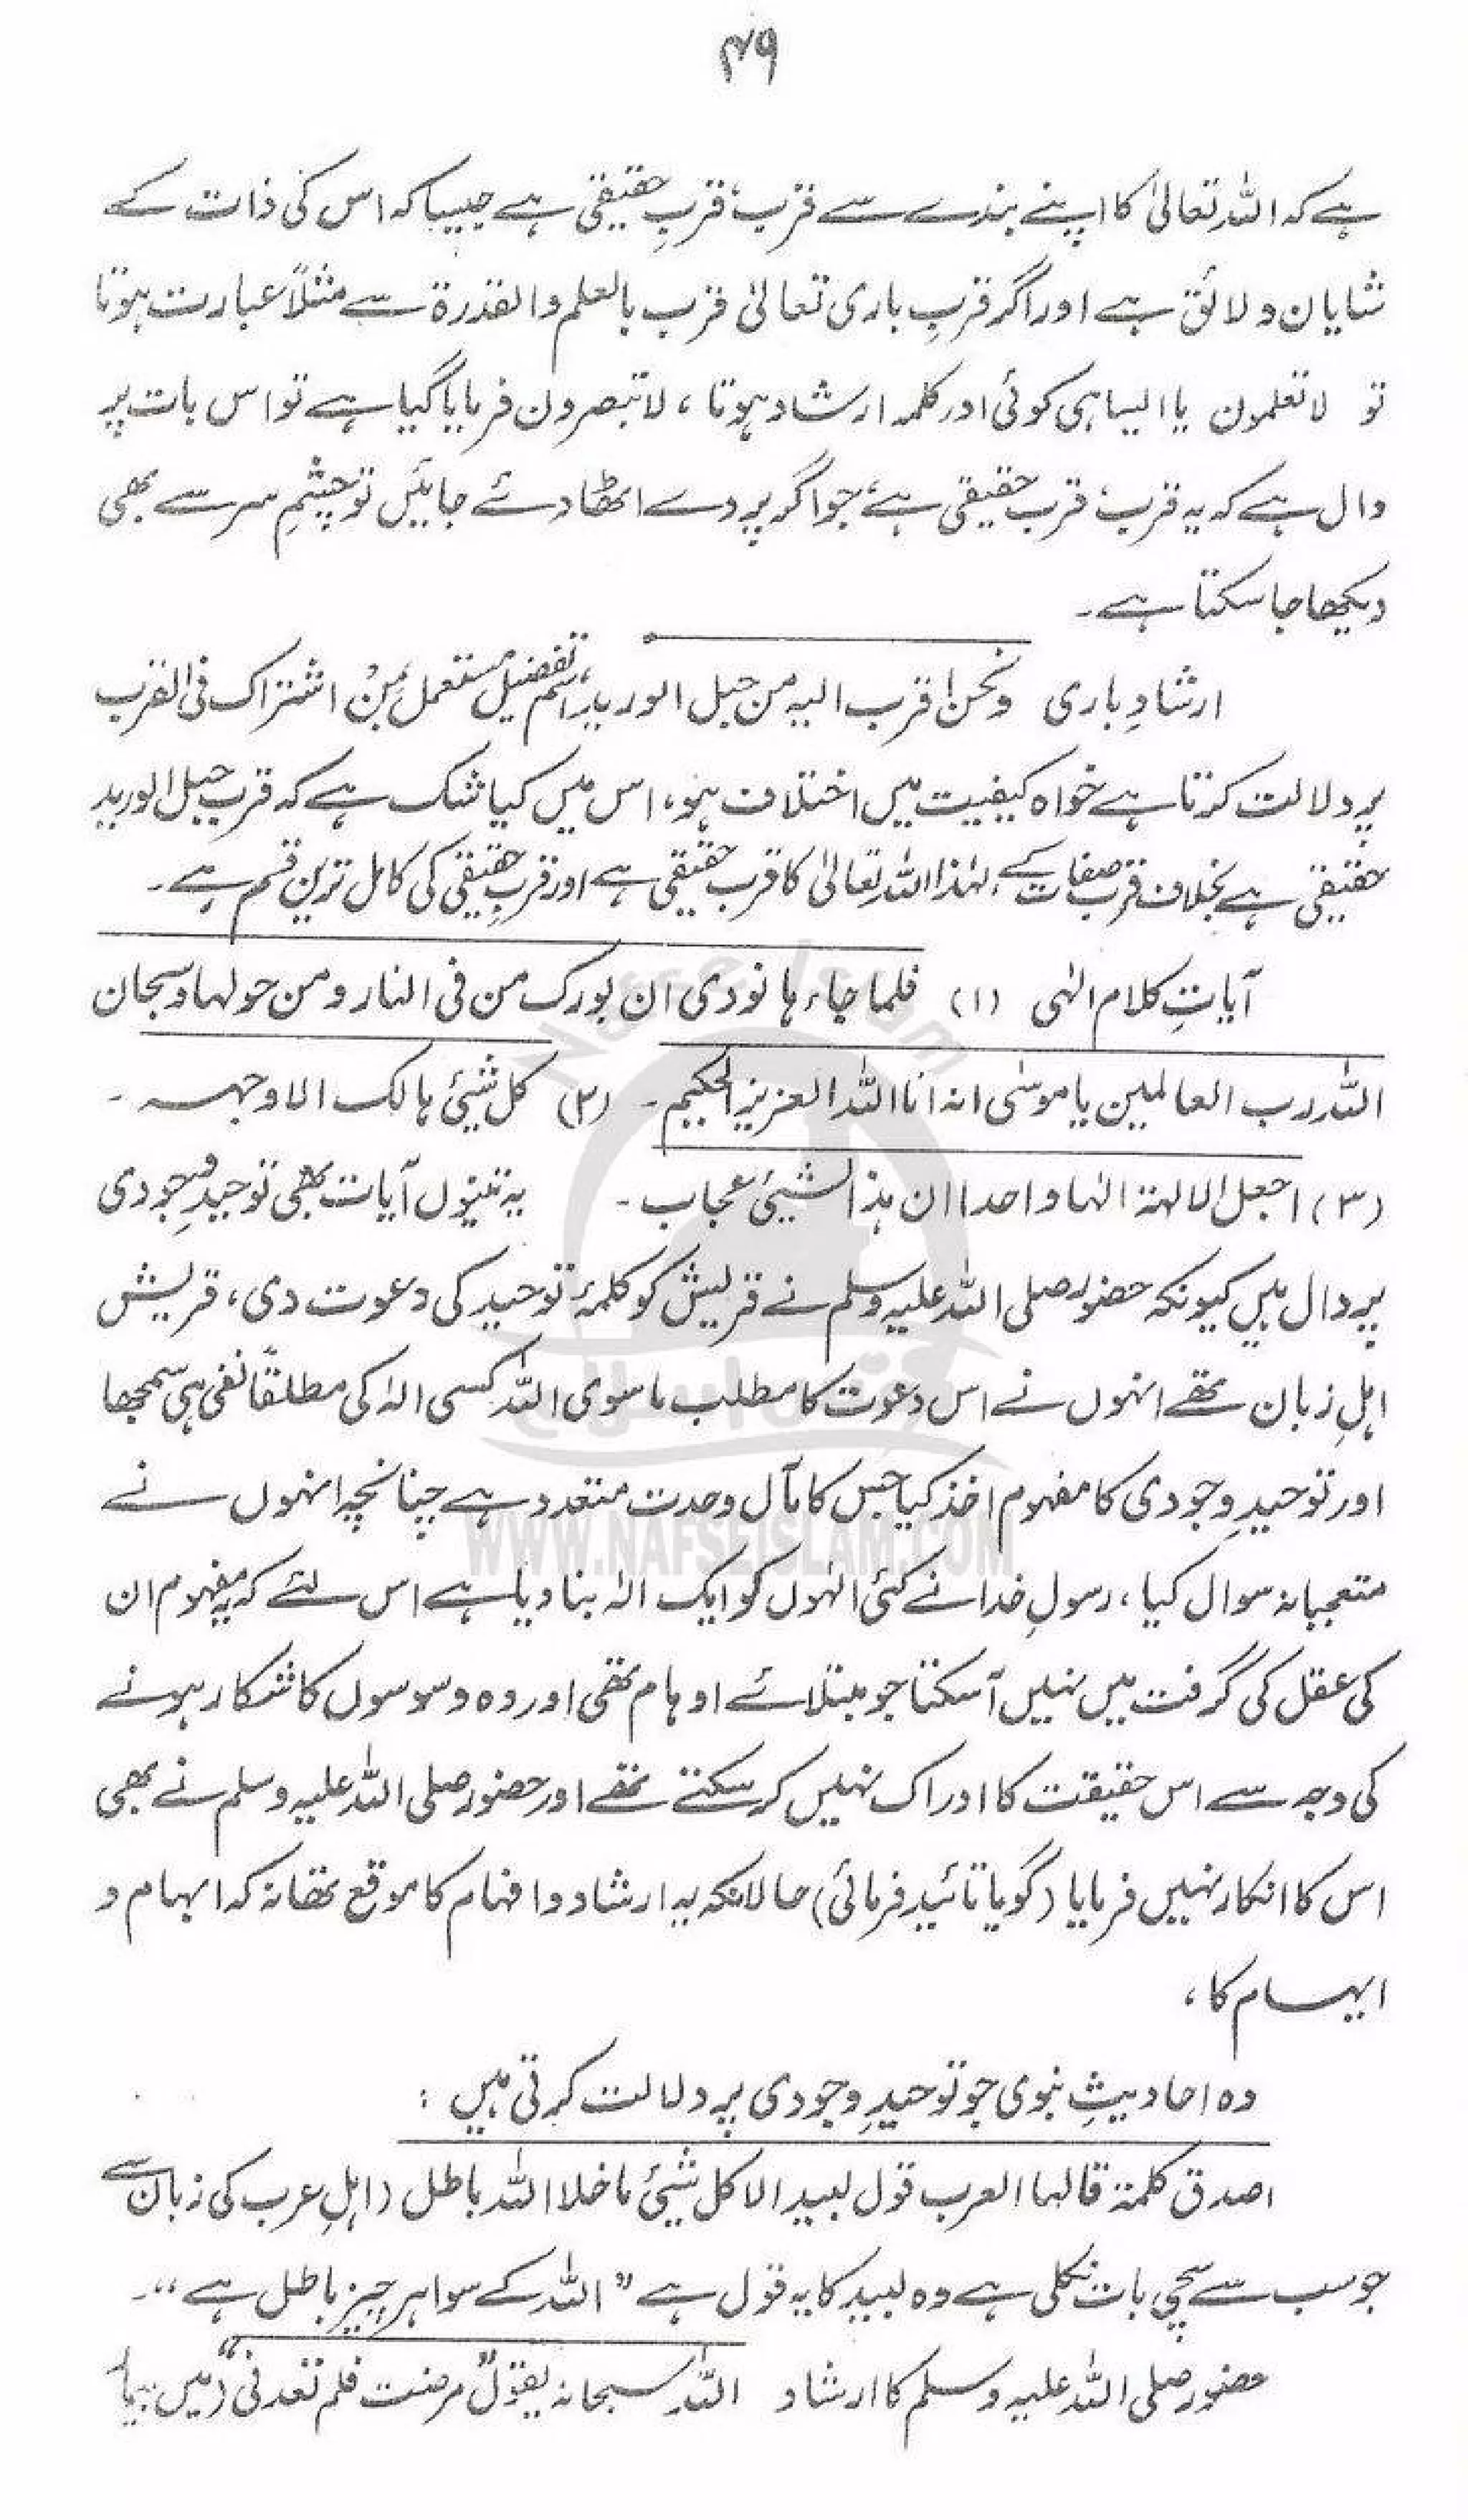 ۴۹
ہے کہ اللہ تعالیٰ کا اپنے بندے سے قرب، قربِ حقیقی ہے جیسا کہ اس کی ذات کے
شایان و لائق ہے اور اگر قربِ باری تعالیٰ قرب بالعلم والقدرۃ سے مثلاً عبارت ہوتا
تو لا تعلمون یا ایسا ہی کوئی اور کلمہ ارشاد ہوتا، لا تبصرون فرمایا گیا ہے تو اس بات پر
دال ہے کہ یہ قرب، قرب حقیقی ہے، جو اگر پردے اٹھا دئے جائیں تو چشمِ سر سے بھی
دیکھا جا سکتا ہے۔
ارشادِ باری ونحن اقرب الیہ من حبل الورید، اسم تفضیل مستعمل بمِنْ اشتراک فی القرب
پر دلالت کرتا ہے خواہ کیفیت میں اختلاف ہو، اس میں کیا شک ہے کہ قرب حبل الورید
حقیقی ہے بخلاف قرب صفات کے، لہٰذا اللہ تعالیٰ کا قرب حقیقی ہے اور قربِ حقیقی کی کامل ترین قسم ہے۔
آیاتِ کلام الٰہی (۱) فلما جاء ہا نودی ان بورک من فی النار و من حولہا و سبحان
اللہ رب العالمین یا موسٰی انہ انا اللہ العزیز الحکیم۔ (۲) کل شیئ ہالک الا وجہہ۔
(۳) اجعل الالہۃ الٰہا واحدا ان ہذا لشیئ عجاب۔ یہ تینوں آیات بھی توحیدِ وجودی
پر دال ہیں کیونکہ حضور صلی اللہ علیہ وسلم نے قریش کو کلمۂ توحید کی دعوت دی، قریش
اہلِ زبان تھے انہوں نے اس دعوت کا مطلب ما سوی اللہ کسی الٰہ کی مطلقاً نفی ہی سمجھا
اور توحیدِ وجودی کا مفہوم اخذ کیا جس کا مآل وحدت متعدد ہے چنانچہ انہوں نے
متعجبانہ سوال کیا، رسولِ خدا نے کئی الٰہوں کو ایک الٰہ بنا دیا ہے اس لئے کہ یہ مفہوم ان
کی عقل کی گرفت میں نہیں آ سکتا جو مبتلائے اوہام تھی اور وہ وسوسوں کا شکار ہونے
کی وجہ سے اس حقیقت کا ادراک نہیں کر سکتے تھے اور حضور صلی اللہ علیہ وسلم نے بھی
اس کا انکار نہیں فرمایا (گویا تائید فرمائی) حالانکہ یہ ارشاد و افہام کا موقع تھا نہ کہ ابہام و
ایہام کا،
وہ احادیثِ نبوی جو توحیدِ وجودی پر دلالت کرتی ہیں :
اصدق کلمۃ قالہا العرب قول لبید الا کل شیئ ما خلا اللہ باطل (اہلِ عرب کی زبان سے
جو سب سے سچی بات نکلی ہے وہ لبید کا یہ قول ہے " اللہ کے سوا ہر چیز باطل ہے "۔
حضور صلی اللہ علیہ وسلم کا ارشاد اللہ سبحانہ یقول "مرضت فلم تعدنی" (میں بیمار
Nafse Islam
نفس اسلام
WWW.NAFSEISLAM.COM